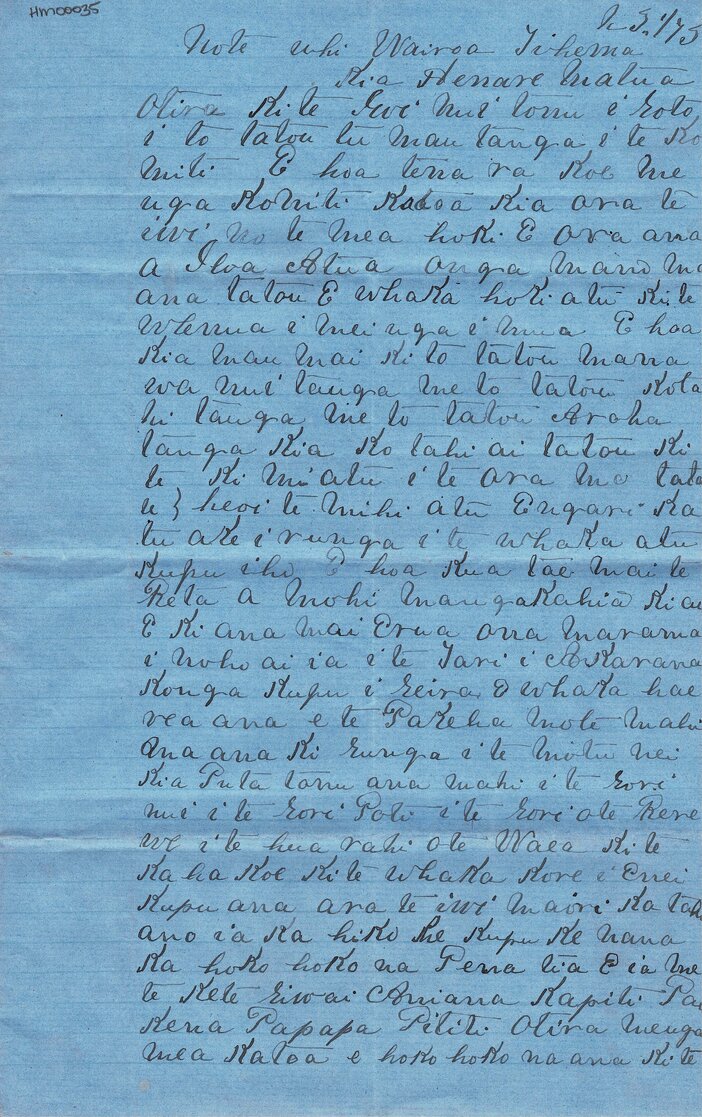 HM00035
Note uhi Wairoa Tihema
Kia Henare Matua
Otira Ki te Iwi nui tonu i roto
i to tatou tu mau tanga i te Ko
miti E hoa tena ra Koe me
nga Komiti Katoa Kia ora te
iwi no te mea hoki E ora ana
a Ihoa Atua onga mano ma
ana tatou E whaka hoki atu Ki te
whenua i mei nga i mua E hoa
Kia mau mai Ki to tatou mana
wa nui tanga me to tatou Kota
hi tanga me to tatou Aroha
tanga Kia Ko tahi ai tatou Ki
te Ki mi atu i te ora mo tato
u } heoi te mihi atu Engari Ka
tu ake i runga i te whaka atu
Kupu iho E hoa Kua tae mai te
Reta a Mohi Mangakahia Kiau
E Ki ana mai Erua ona marama
i noho ai ia i te Tari i Akarana
Konga Kupu i reira E whaka hae
rea ana e te Pakeha mote mahi
ma ana Ki runga i te motu nei
Kia Puta tonu ana mahi i te rori
nui i te rori Poti i te rori ote Rere
we i te hua rahi ote Waea Ki te
Kaha Koe Ki te whaka Kore i Enei
Kupu ana ara te iwi maori Ka
ano ia Ka hiko he Kupu Ke nana
Ka hoko hoko na Pena tia E ia me
te Kete riwai Aniana Kapiti Pa
Kena Papapa Pititi Otira menga
mea Katoa e hoko hoko na ana Ki te